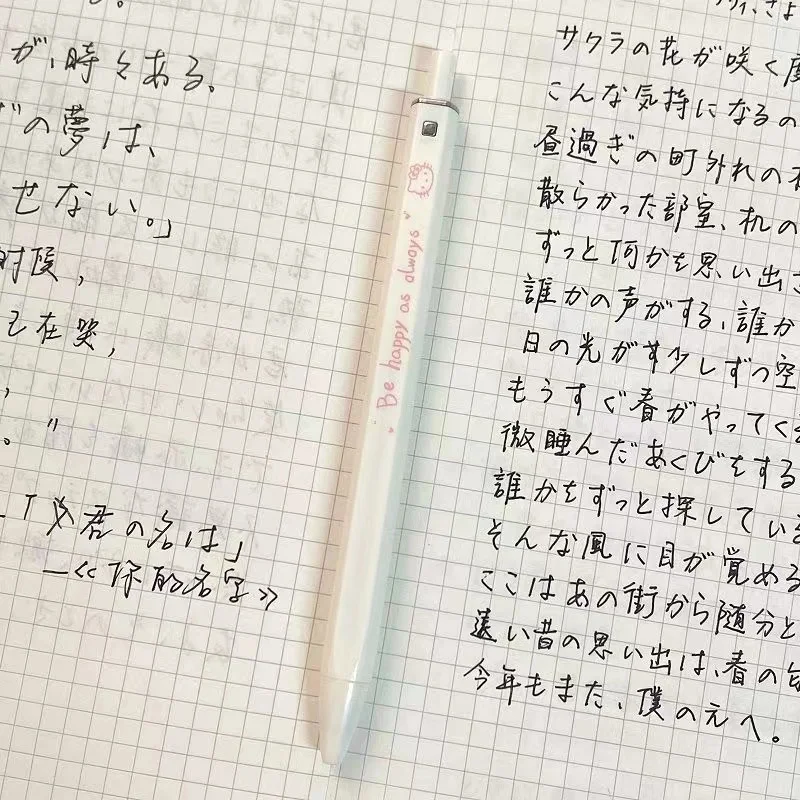 が、時々ある、
の夢は、
せない。」
时候，
己在哭，
。"
「君の名は」
—《你的名字》
Be happy as always
サクラの花が咲く度
こんな気持になるの
昼過ぎの町外れの
散らかった部室、机の
ずっと何かを思い出さ
誰かの声がする、誰か
日の光が少しずつ空
もうすぐ春がやってく
微睡んだあくびをする
誰かをずっと探してい
そんな風に目が覚める
ここはあの街から随分と
遠い昔の思い出は、春の
今年もまた、僕の元へ。